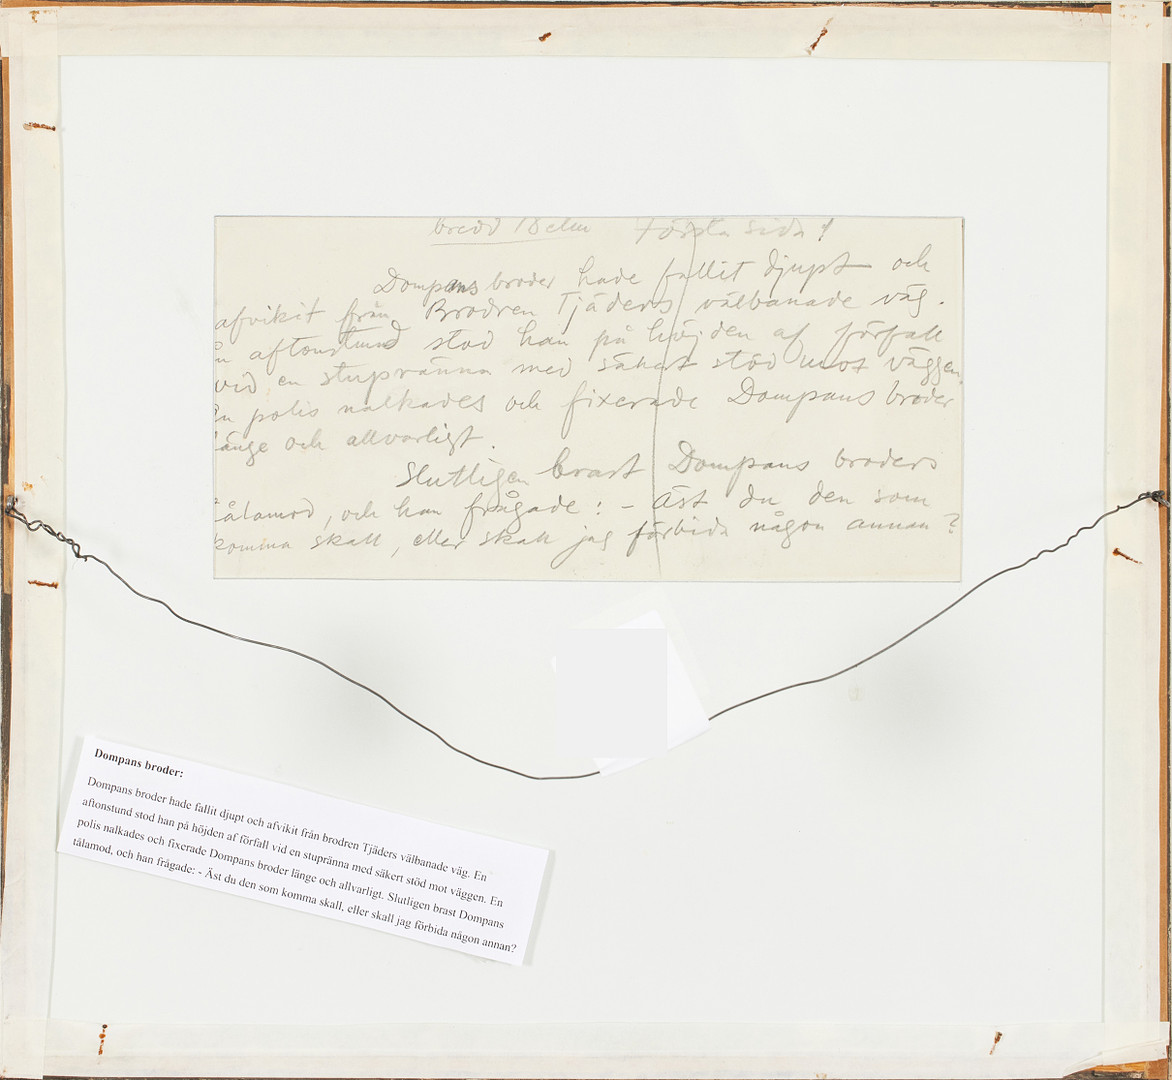 bredd 18 ctm Första sida !
Dompans broder hade fallit djupt och
afvikit från Brodren Tjäders välbanade väg.
n aftonstund stod han på höjden af förfall
vid en stupränna med säkert stöd mot väggen.
En polis nalkades och fixerade Dompans broder
länge och allvarligt.
Slutligen brast Dompans broders
tålamod, och han frågade: - Äst du den som
komma skall, eller skall jag förbida någon annan?
Dompans broder:
Dompans broder hade fallit djupt och afvikit från brodren Tjäders välbanade väg. En
aftonstund stod han på höjden af förfall vid en stupränna med säkert stöd mot väggen. En
polis nalkades och fixerade Dompans broder länge och allvarligt. Slutligen brast Dompans
tålamod, och han frågade: - Äst du den som komma skall, eller skall jag förbida någon annan?